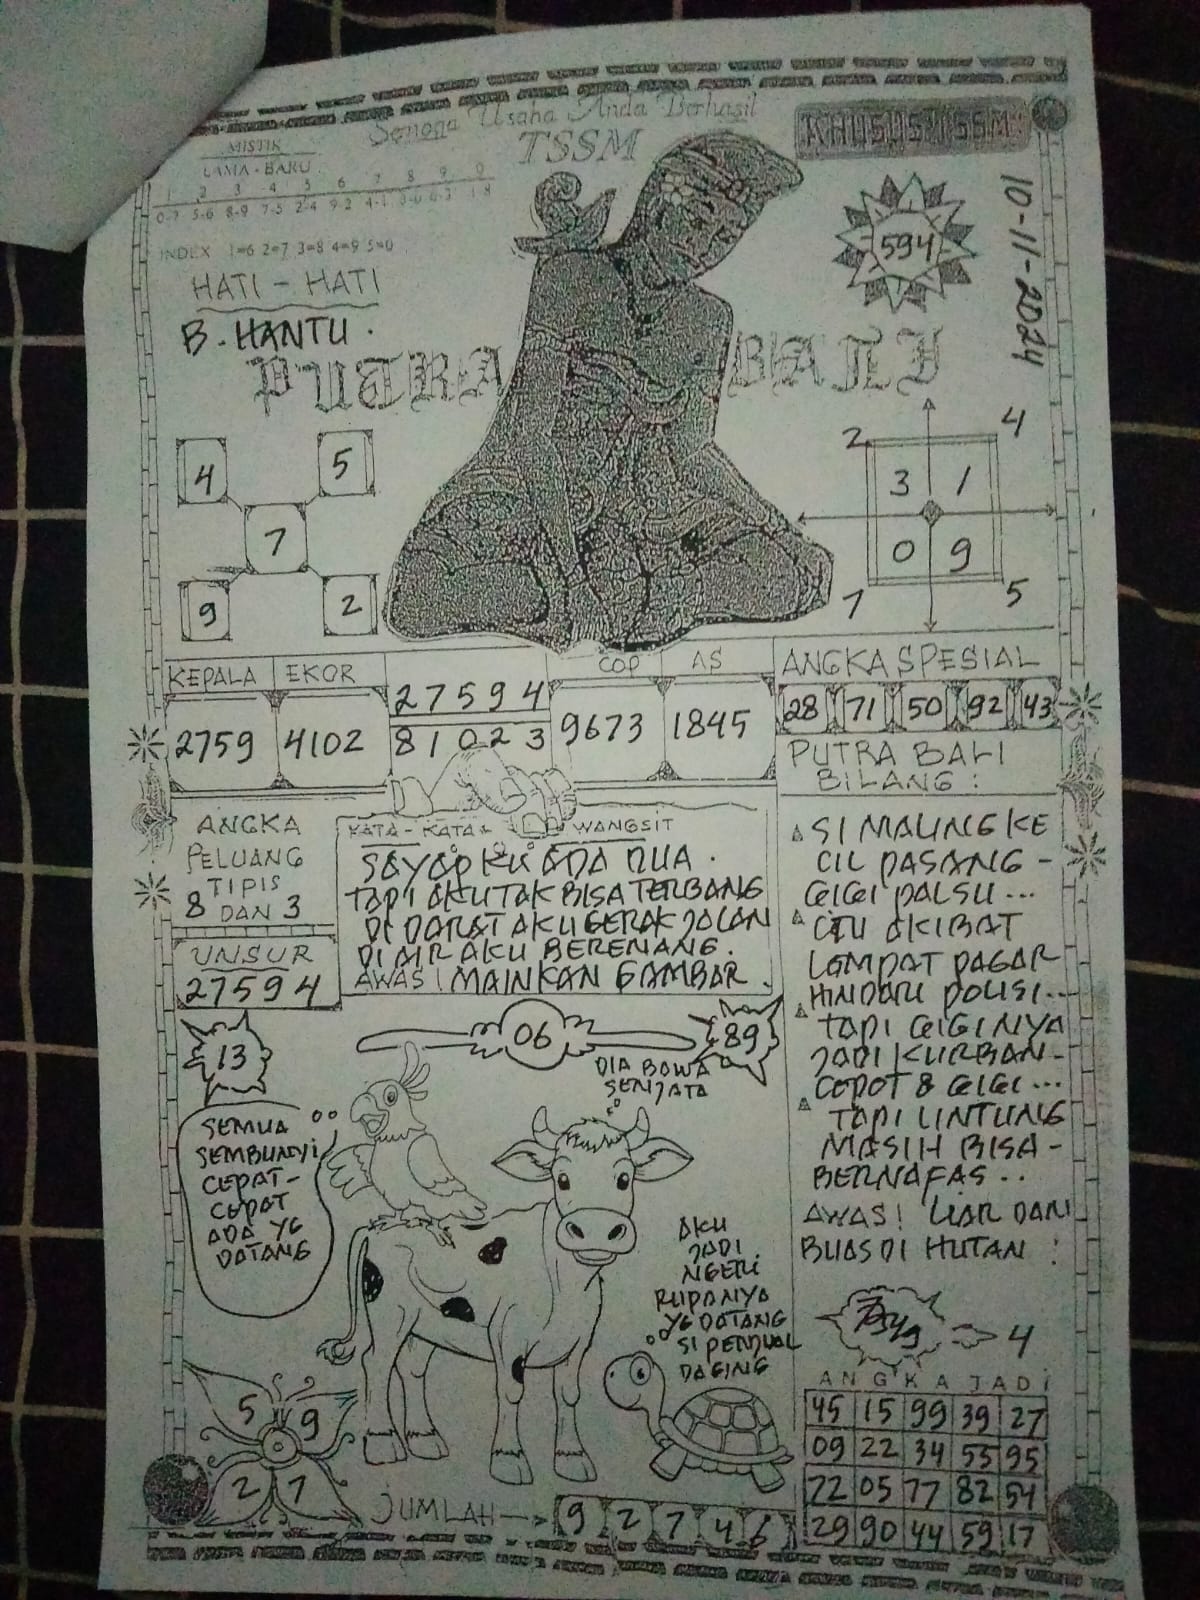 Semoga Usaha Anda Berhasil
TSSM
KHUSUS TSSM
MISTIK
LAMA - BARU
1 2 3 4 5 6 7 8 9 0
0-7 5-6 8-9 7-5 2-4 9-2 4-1 3-0 6-3 1-8
INDEX 1=6 2=7 3=8 4=9 5=0
594
10-11-2024
HATI - HATI
B. HANTU.
PUTRA BALI
4 5
7
9 2
2 4
3 1
0 9
7 5
KEPALA EKOR
2759 4102
27594
81023
COP AS
9673 1845
ANGKA SPESIAL
28 71 50 92 43
PUTRA BALI
BILANG :
ANGKA
PELUANG
TIPIS
8 DAN 3
UNSUR
27594
KATA - KATA WANGSIT
SAYAP KU ADA DUA.
TAPI AKU TAK BISA TERBANG
DI DARAT AKU GERAK JALAN
DI AIR AKU BERENANG.
AWAS! MAINKAN GAMBAR.
SI MALING KE
CIL PASANG -
GIGI PALSU ...
ITU AKIBAT
LOMPAT PAGAR
HINDARI POLISI...
TAPI GIGINYA
JADI KURBAN -
COPOT 8 GIGI ...
TAPI UNTUNG
MASIH BISA -
BERNAFAS ..
AWAS! LIAR DAN
BUAS DI HUTAN :
13
06
89
DIA BAWA
SENJATA
SEMUA
SEMBUNYI
CEPAT -
CEPAT
ADA YG
DATANG
AKU
JADI
NGERI
RUPANYA
YG DATANG
SI PENJUAL
DAGING
4
ANGKA JADI
45 15 99 39 27
09 22 34 55 95
72 05 77 82 54
29 90 44 59 17
5 9
2 7
JUMLAH
9 2 7 4 6